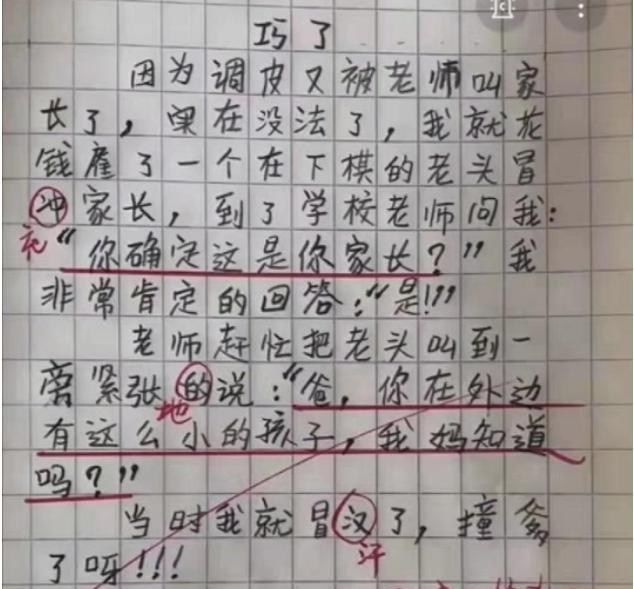 巧了
因为调皮又被老师叫家
长了，果在没法了，我就花
钱雇了一个在下棋的老头冒
冲家长，到了学校老师问我：
充
“你确定这是你家长？”我
非常肯定的回答：“是!”
老师赶忙把老头叫到一
旁紧张的说：“爸，你在外边
地
有这么小的孩子，我妈知道
吗？”
当时我就冒汉了，撞爹
汗
了呀!!!